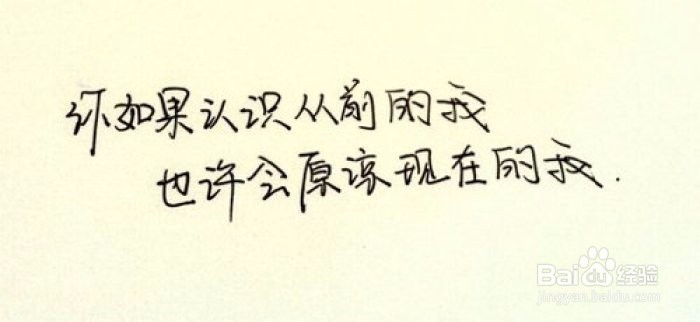 你如果认识从前的我
也许会原谅现在的我.
Bai 经验
jingyan.baidu.com